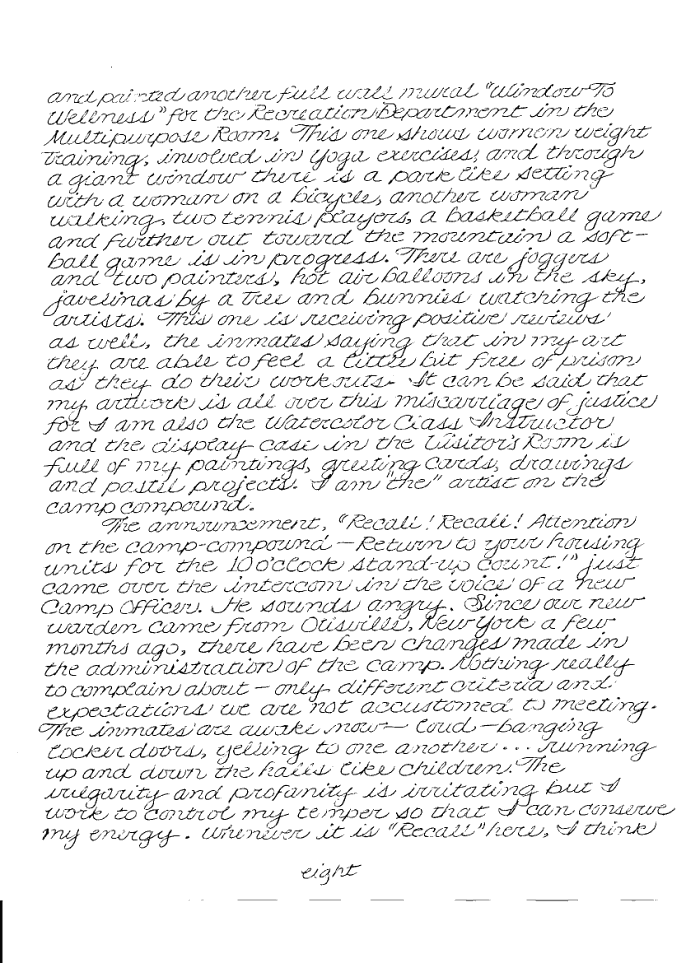 and painted another full wall mural "Window To
Wellness" for the Recreation Department in the
Multipurpose Room. This one shows women weight
training, involved in yoga exercises, and through
a giant window there is a park like setting
with a woman on a bicycle, another woman
walking, two tennis players, a basketball game
and further out toward the mountain a soft-
ball game is in progress. There are joggers
and two painters, hot air balloons in the sky,
javelinas by a tree and bunnies watching the
artists. This one is receiving positive reviews
as well, the inmates saying that in my art
they are able to feel a little bit free of prison
as they do their workouts. It can be said that
my artwork is all over this miscarriage of justice
for I am also the Watercolor Class Instructor
and the display case in the Visitor's Room is
full of my paintings, greeting cards, drawings
and pastel projects. I am "the" artist on the
camp compound.
The announcement, "Recall! Recall! Attention
on the camp-compound — Return to your housing
units for the 10 o'clock stand-up count!" just
came over the intercom in the voice of a new
Camp Officer. He sounds angry. Since our new
warden came from Otisville, New York a few
months ago, there have been changes made in
the administration of the camp. Nothing really
to complain about — only different criteria and
expectations we are not accustomed to meeting.
The inmates are awake now — loud — banging
locker doors, yelling to one another ... running
up and down the halls like children. The
vulgarity and profanity is irritating but I
work to control my temper so that I can conserve
my energy. Whenever it is "Recall" here, I think
eight